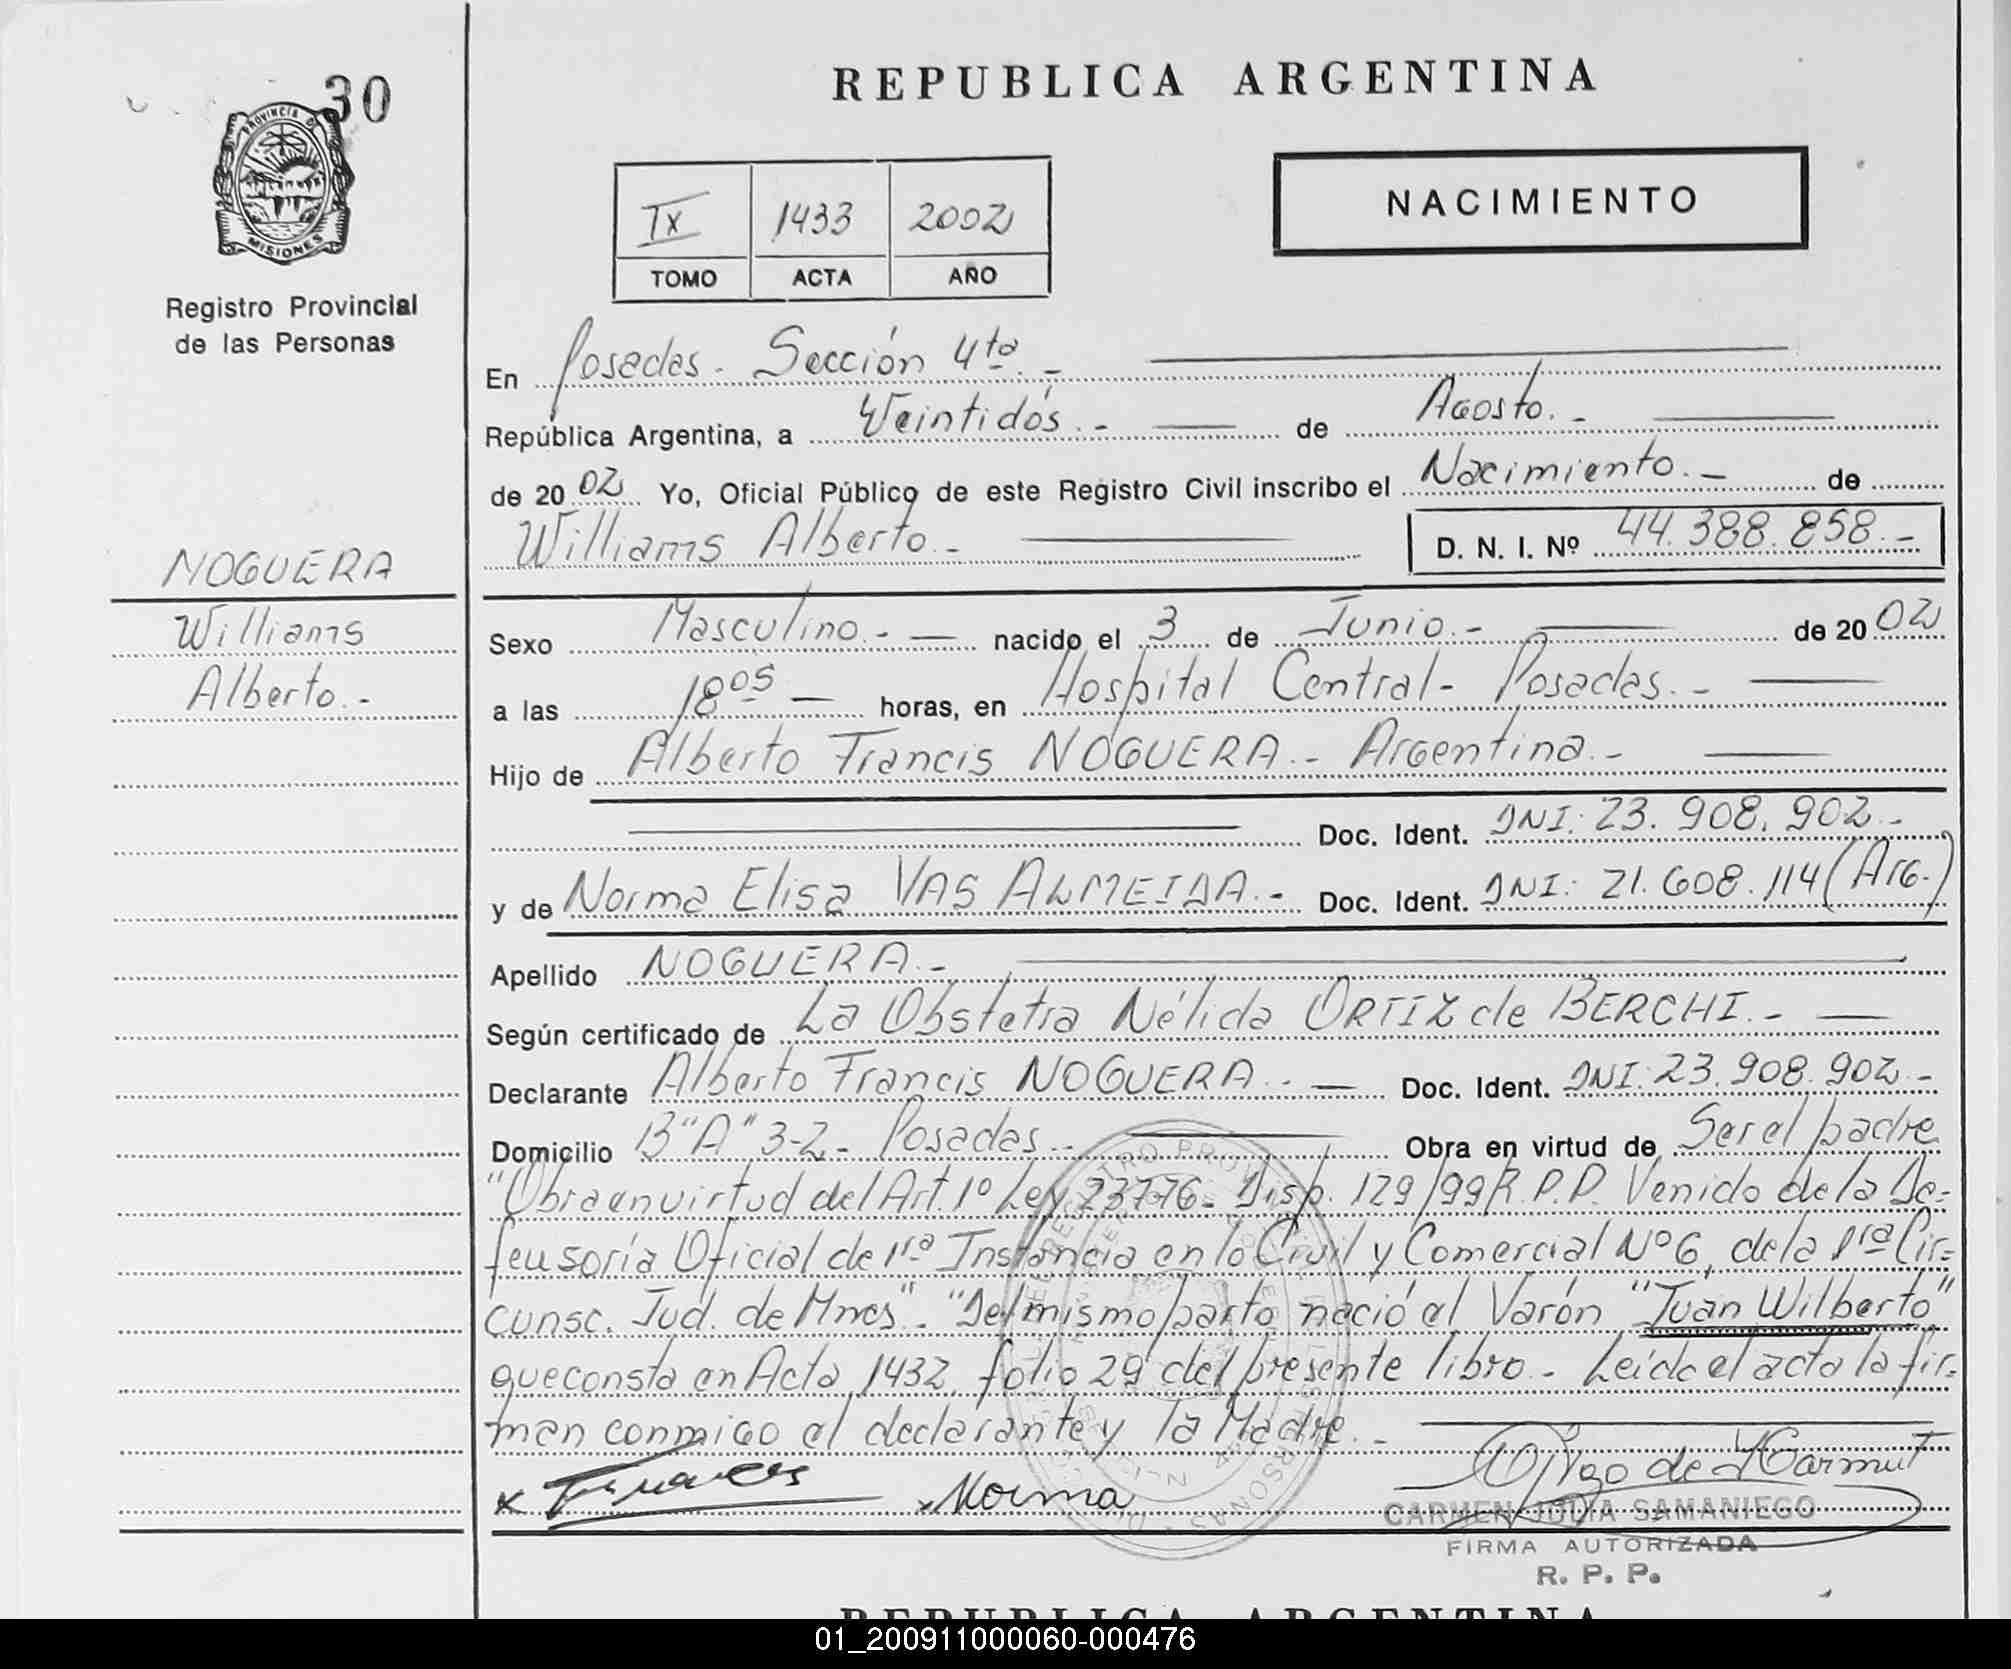 30
PROVINCIA DE
MISIONES
Registro Provincial
de las Personas
NOGUERA
Williams
Alberto.-
REPUBLICA ARGENTINA
NACIMIENTO
IX 1433 2002
TOMO ACTA AÑO
En Posadas. Sección 4ta.-
República Argentina, a Veintidós.- de Agosto.-
de 2002 Yo, Oficial Público de este Registro Civil inscribo el Nacimiento.- de
Williams Alberto.- D. N. I. Nº 44.388.858.-
Sexo Masculino.- nacido el 3 de Junio.- de 2002
a las 18 05 horas, en Hospital Central- Posadas.-
Hijo de Alberto Francis NOGUERA.- Argentina.-
Doc. Ident. DNI: 23.908.902.-
y de Norma Elisa VAS ALMEIDA.- Doc. Ident. DNI: 21.608.114 (Arg.)
Apellido NOGUERA.-
Según certificado de La Obstetra Nélida ORTIZ de BERCHI.-
Declarante Alberto Francis NOGUERA.- Doc. Ident. DNI: 23.908.902.-
Domicilio B "A" 3-2.- Posadas.- Obra en virtud de Ser el padre
"Obra en virtud del Art. 1º Ley 23776- Disp. 129/99 R.P.P. Venido de la De=
fensoría Oficial de 1ra Instancia en lo Civil y Comercial Nº 6, de la 1ra Cir=
cunsc. Jud. de Mnes". "Del mismo parto nació el Varón "Juan Wilberto"
que consta en Acta 1432, folio 29 del presente libro.- Leída el acta la fir=
man conmigo el declarante y la Madre.-
x x Norma
CARMEN JULIA SAMANIEGO
FIRMA AUTORIZADA
R. P. P.
REPUBLICA ARGENTINA
01_200911000060-000476